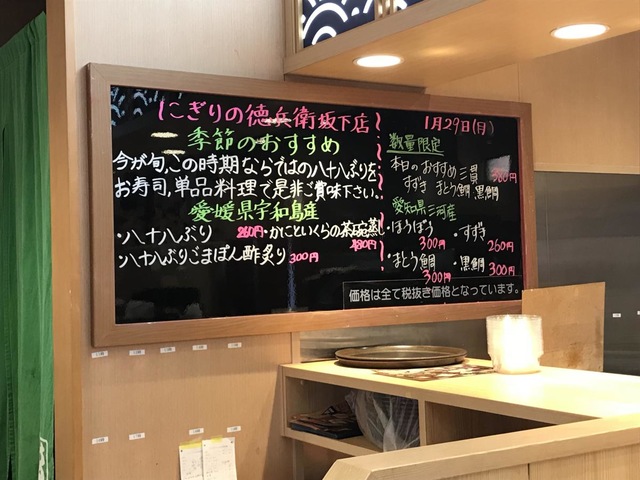 にぎりの徳兵衛坂下店
季節のおすすめ
今が旬、この時期ならではの八十八ぶりを
お寿司、単品料理で是非ご賞味下さい。
愛媛県宇和島産
・八十八ぶり 260円・かにといくらの茶碗蒸し 480円
・八十八ぶりごまぽん酢炙り 300円
1月29日(月)
数量限定
本日のおすすめ三貫 380円
すずき まとう鯛 黒鯛
愛知県三河産
・ほうぼう 300円
・すずき 260円
・まとう鯛 300円
・黒鯛 300円
価格は全て税抜き価格となっています。